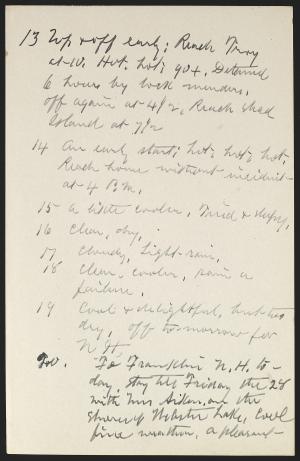 13 Up & off early; Reach Troy
at 10. Hot, hot; 90+. Detained
6 hours by lock menders,
off again at 4 1/2, Reach Shad
Island at 7 1/2
14 An early start; hot, hot, hot,
Reach home without incident
at 4 P.M.
15 A little cooler, Tired & sleepy,
16 Clear, dry,
17 Cloudy, light rain,
18 Clear, cooler, rain a
failure.
19 Cool & delightful, but too
dry, off to-morrow for
N H,
20. To Franklin N. H. to-
day, stay till Friday the 28
with Mrs Aiken, on the
shores of Webster Lake, Cool
fine weather, a pleasant-